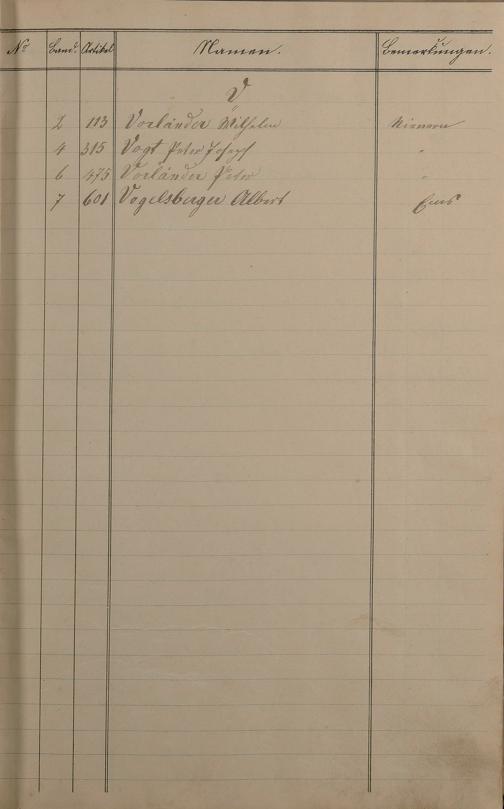 No Band. Artikel Namen. Bemerkungen.
V
2 113 Vorländer Wilhelm Nievern
4 315 Vogt Peter Joseph "
6 475 Vorländer Peter "
7 601 Vogelsberger Albert Ems